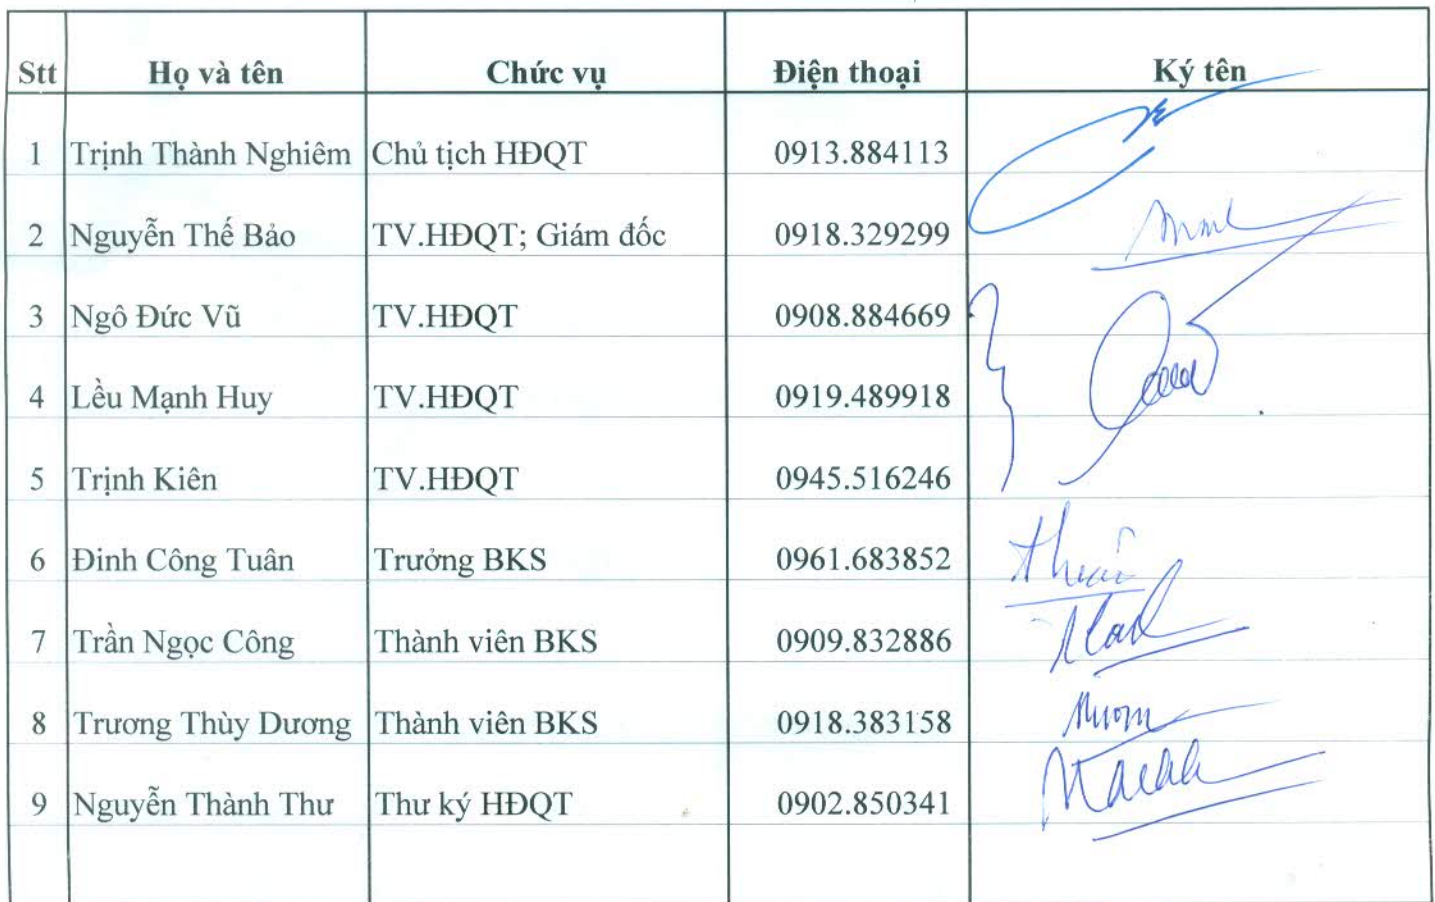 Stt Họ và tên Chức vụ Điện thoại Ký tên
1 Trịnh Thành Nghiêm Chủ tịch HĐQT 0913.884113
2 Nguyễn Thế Bảo TV.HĐQT; Giám đốc 0918.329299
3 Ngô Đức Vũ TV.HĐQT 0908.884669
4 Lều Mạnh Huy TV.HĐQT 0919.489918
5 Trịnh Kiên TV.HĐQT 0945.516246
6 Đinh Công Tuân Trưởng BKS 0961.683852
7 Trần Ngọc Công Thành viên BKS 0909.832886
8 Trương Thùy Dương Thành viên BKS 0918.383158
9 Nguyễn Thành Thư Thư ký HĐQT 0902.850341